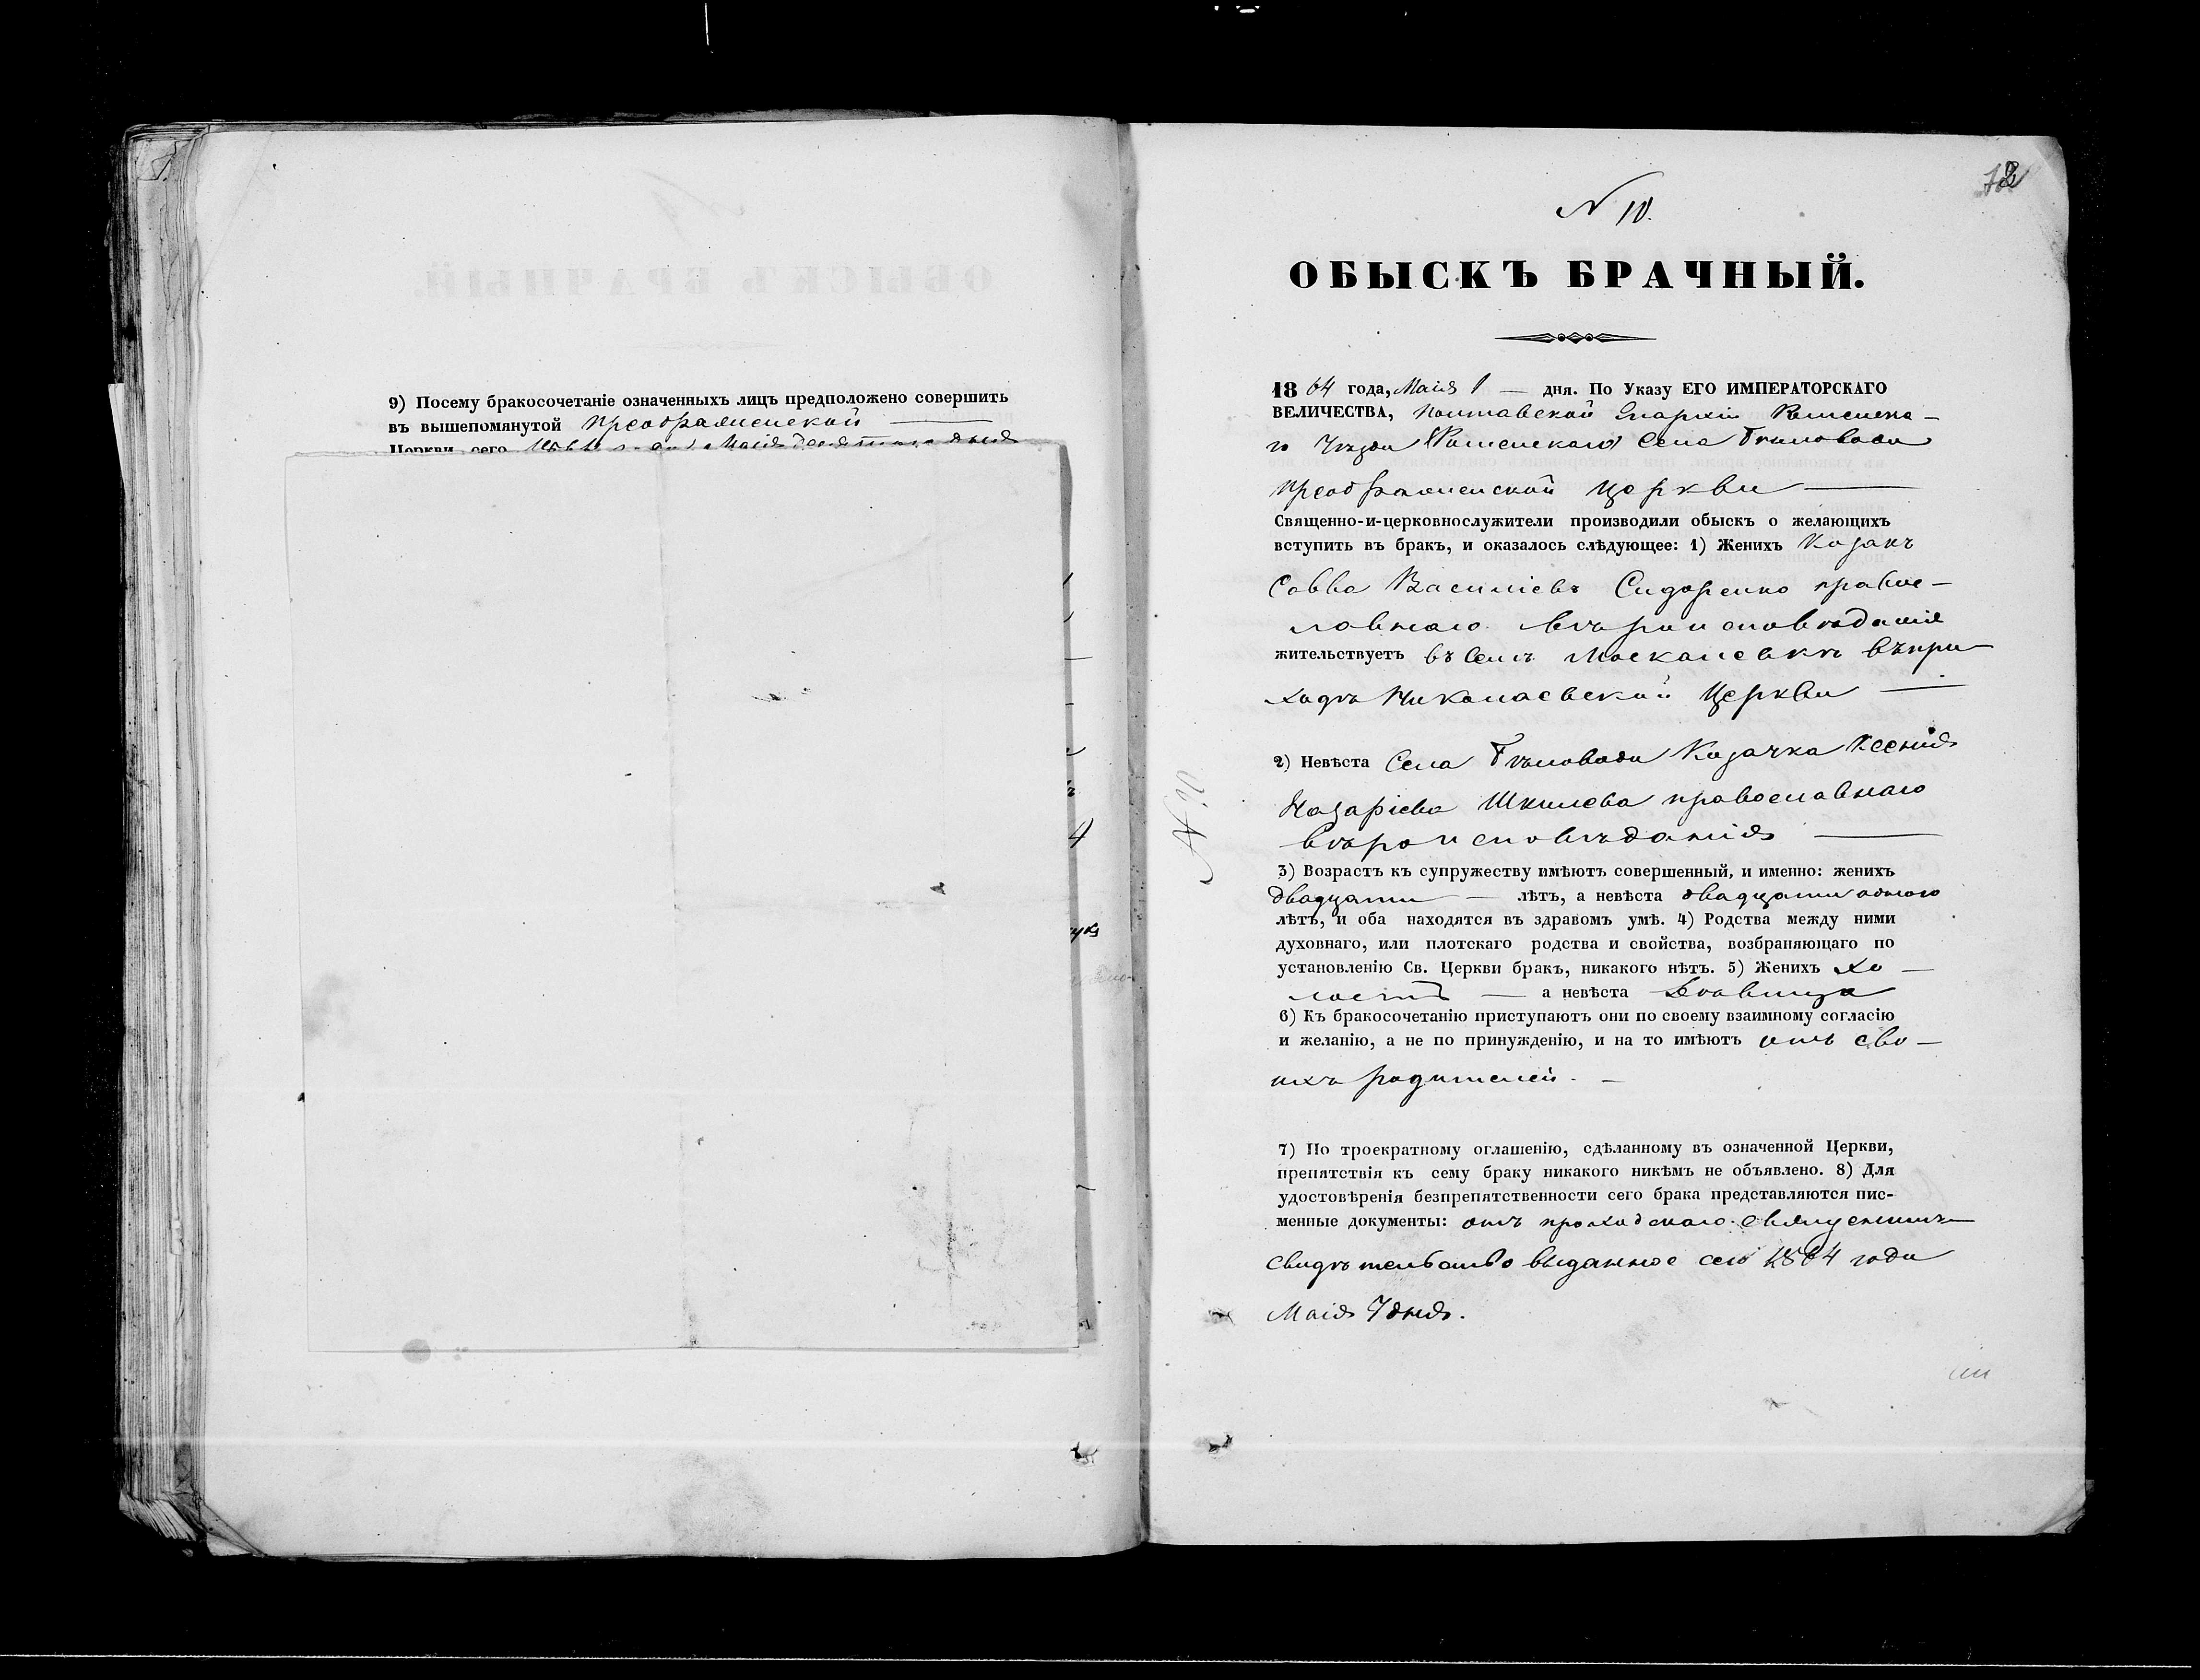 9) Посему бракосочетаніе означенныхъ лицъ предположено совершить
въ вышепомянутой Преображенской
Церкви сего Маія десятаго дня
N 10.
ОБЫСКЪ БРАЧНЫЙ.
1864 года, Маія дня. По Указу ЕГО ИМПЕРАТОРСКАГО
ВЕЛИЧЕСТВА, Полтавской Епархіи Роменска-
го Уѣзда Роменскаго Села
Преображенской Церкви
Священно-и-церковнослужители производили обыскъ о желающихъ
вступить въ бракъ, и оказалось слѣдующее: 1) Женихъ Козакъ
Савва Василіевъ Сидоренко правос-
лавнаго вѣроисповѣданія
жительствуетъ въ Селѣ Москалевкѣ въ при-
ходѣ Николаевской Церкви
2) Невѣста Села Козачка Ксенія
Назаріева Шкилева православнаго
вѣроисповѣданія
N. 10
3) Возрастъ къ супружеству имѣютъ совершенный, и именно: женихъ
двадцати лѣтъ, а невѣста двадцати одного
лѣтъ, и оба находятся въ здравомъ умѣ. 4) Родства между ними
духовнаго, или плотскаго родства и свойства, возбраняющаго по
установленію Св. Церкви бракъ, никакого нѣтъ. 5) Женихъ хо-
лостъ а невѣста дѣвица
6) Къ бракосочетанію приступаютъ они по своему взаимному согласію
и желанію, а не по принужденію, и на то имѣютъ отъ сво-
ихъ родителей.
7) По троекратному оглашенію, сдѣланному въ означенной Церкви,
препятствія къ сему браку никакого никѣмъ не объявлено. 8) Для
удостовѣренія безпрепятственности сего брака представляются пис-
менные документы: отъ приходскаго священника
свидѣтельство выданное сего 1864 года
Маія 7 дня.